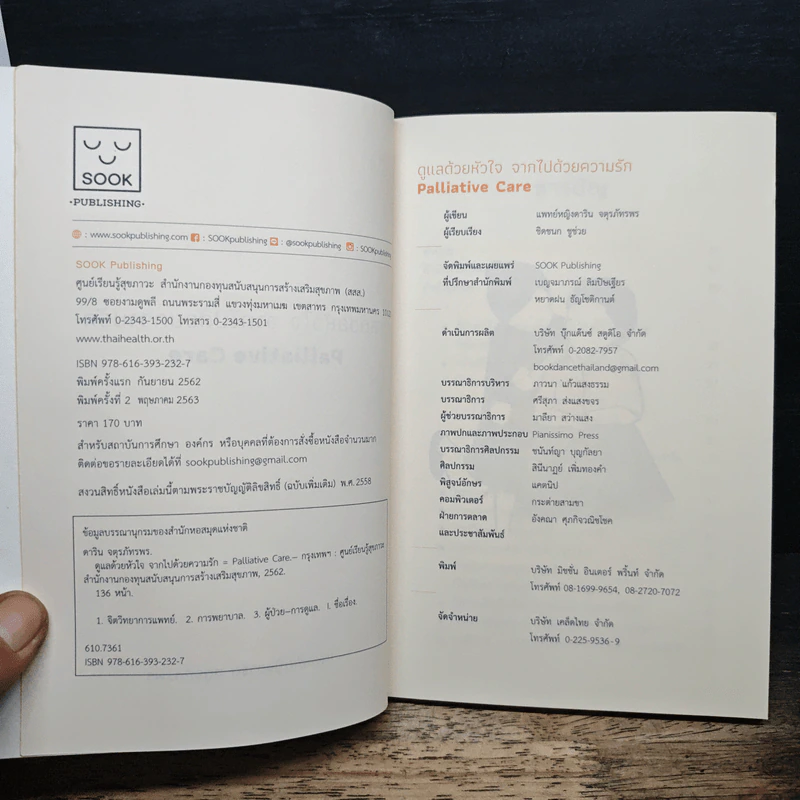 SOOK
•PUBLISHING•
: www.sookpublishing.com : SOOKpublishing : @sookpublishing : SOOKpublishing
SOOK Publishing
ศูนย์เรียนรู้สุขภาวะ สำนักงานกองทุนสนับสนุนการสร้างเสริมสุขภาพ (สสส.)
99/8 ซอยงามดูพลี ถนนพระรามสี่ แขวงทุ่งมหาเมฆ เขตสาทร กรุงเทพมหานคร
โทรศัพท์ 0-2343-1500 โทรสาร 0-2343-1501
www.thaihealth.or.th
ISBN 978-616-393-232-7
พิมพ์ครั้งแรก กันยายน 2562
พิมพ์ครั้งที่ 2 พฤษภาคม 2563
ราคา 170 บาท
สำหรับสถาบันการศึกษา องค์กร หรือบุคคลที่ต้องการสั่งซื้อหนังสือจำนวนมาก
ติดต่อขอรายละเอียดได้ที่ sookpublishing@gmail.com
สงวนสิทธิ์หนังสือเล่มนี้ตามพระราชบัญญัติลิขสิทธิ์ (ฉบับเพิ่มเติม) พ.ศ. 2558
ข้อมูลบรรณานุกรมของสำนักหอสมุดแห่งชาติ
ดาริน จตุรภัทรพร.
ดูแลด้วยหัวใจ จากไปด้วยความรัก = Palliative Care.— กรุงเทพฯ : ศูนย์เรียนรู้สุขภาวะ
สำนักงานกองทุนสนับสนุนการสร้างเสริมสุขภาพ, 2562.
136 หน้า.
1. จิตวิทยาการแพทย์. 2. การพยาบาล. 3. ผู้ป่วย—การดูแล. I. ชื่อเรื่อง.
610.7361
ISBN 978-616-393-232-7
ดูแลด้วยหัวใจ จากไปด้วยความรัก
Palliative Care
ผู้เขียน แพทย์หญิงดาริน จตุรภัทรพร
ผู้เรียบเรียง ชิดชนก ชูช่วย
จัดพิมพ์และเผยแพร่ SOOK Publishing
ที่ปรึกษาสำนักพิมพ์ เบญจมาภรณ์ ลิมปิษเฐียร
หยาดฝน ธัญโชติกานต์
ดำเนินการผลิต บริษัท บุ๊กแด๊นซ์ สตูดิโอ จำกัด
โทรศัพท์ 0-2082-7957
bookdancethailand@gmail.com
บรรณาธิการบริหาร ภาวนา แก้วแสงธรรม
บรรณาธิการ ศรีสุภา ส่งแสงขจร
ผู้ช่วยบรรณาธิการ มาลียา สว่างแสง
ภาพปกและภาพประกอบ Pianissimo Press
บรรณาธิการศิลปกรรม ชนันท์ญา บุญกัลยา
ศิลปกรรม สินีนาฏย์ เพิ่มทองคำ
พิสูจน์อักษร แคตนิป
คอมพิวเตอร์ กระต่ายสามขา
ฝ่ายการตลาด อังคณา ศุภกิจวณิชโชค
และประชาสัมพันธ์
พิมพ์ บริษัท มิชชั่น อินเตอร์ พริ้นท์ จำกัด
โทรศัพท์ 08-1699-9654, 08-2720-7072
จัดจำหน่าย บริษัท เคล็ดไทย จำกัด
โทรศัพท์ 0-225-9536-9